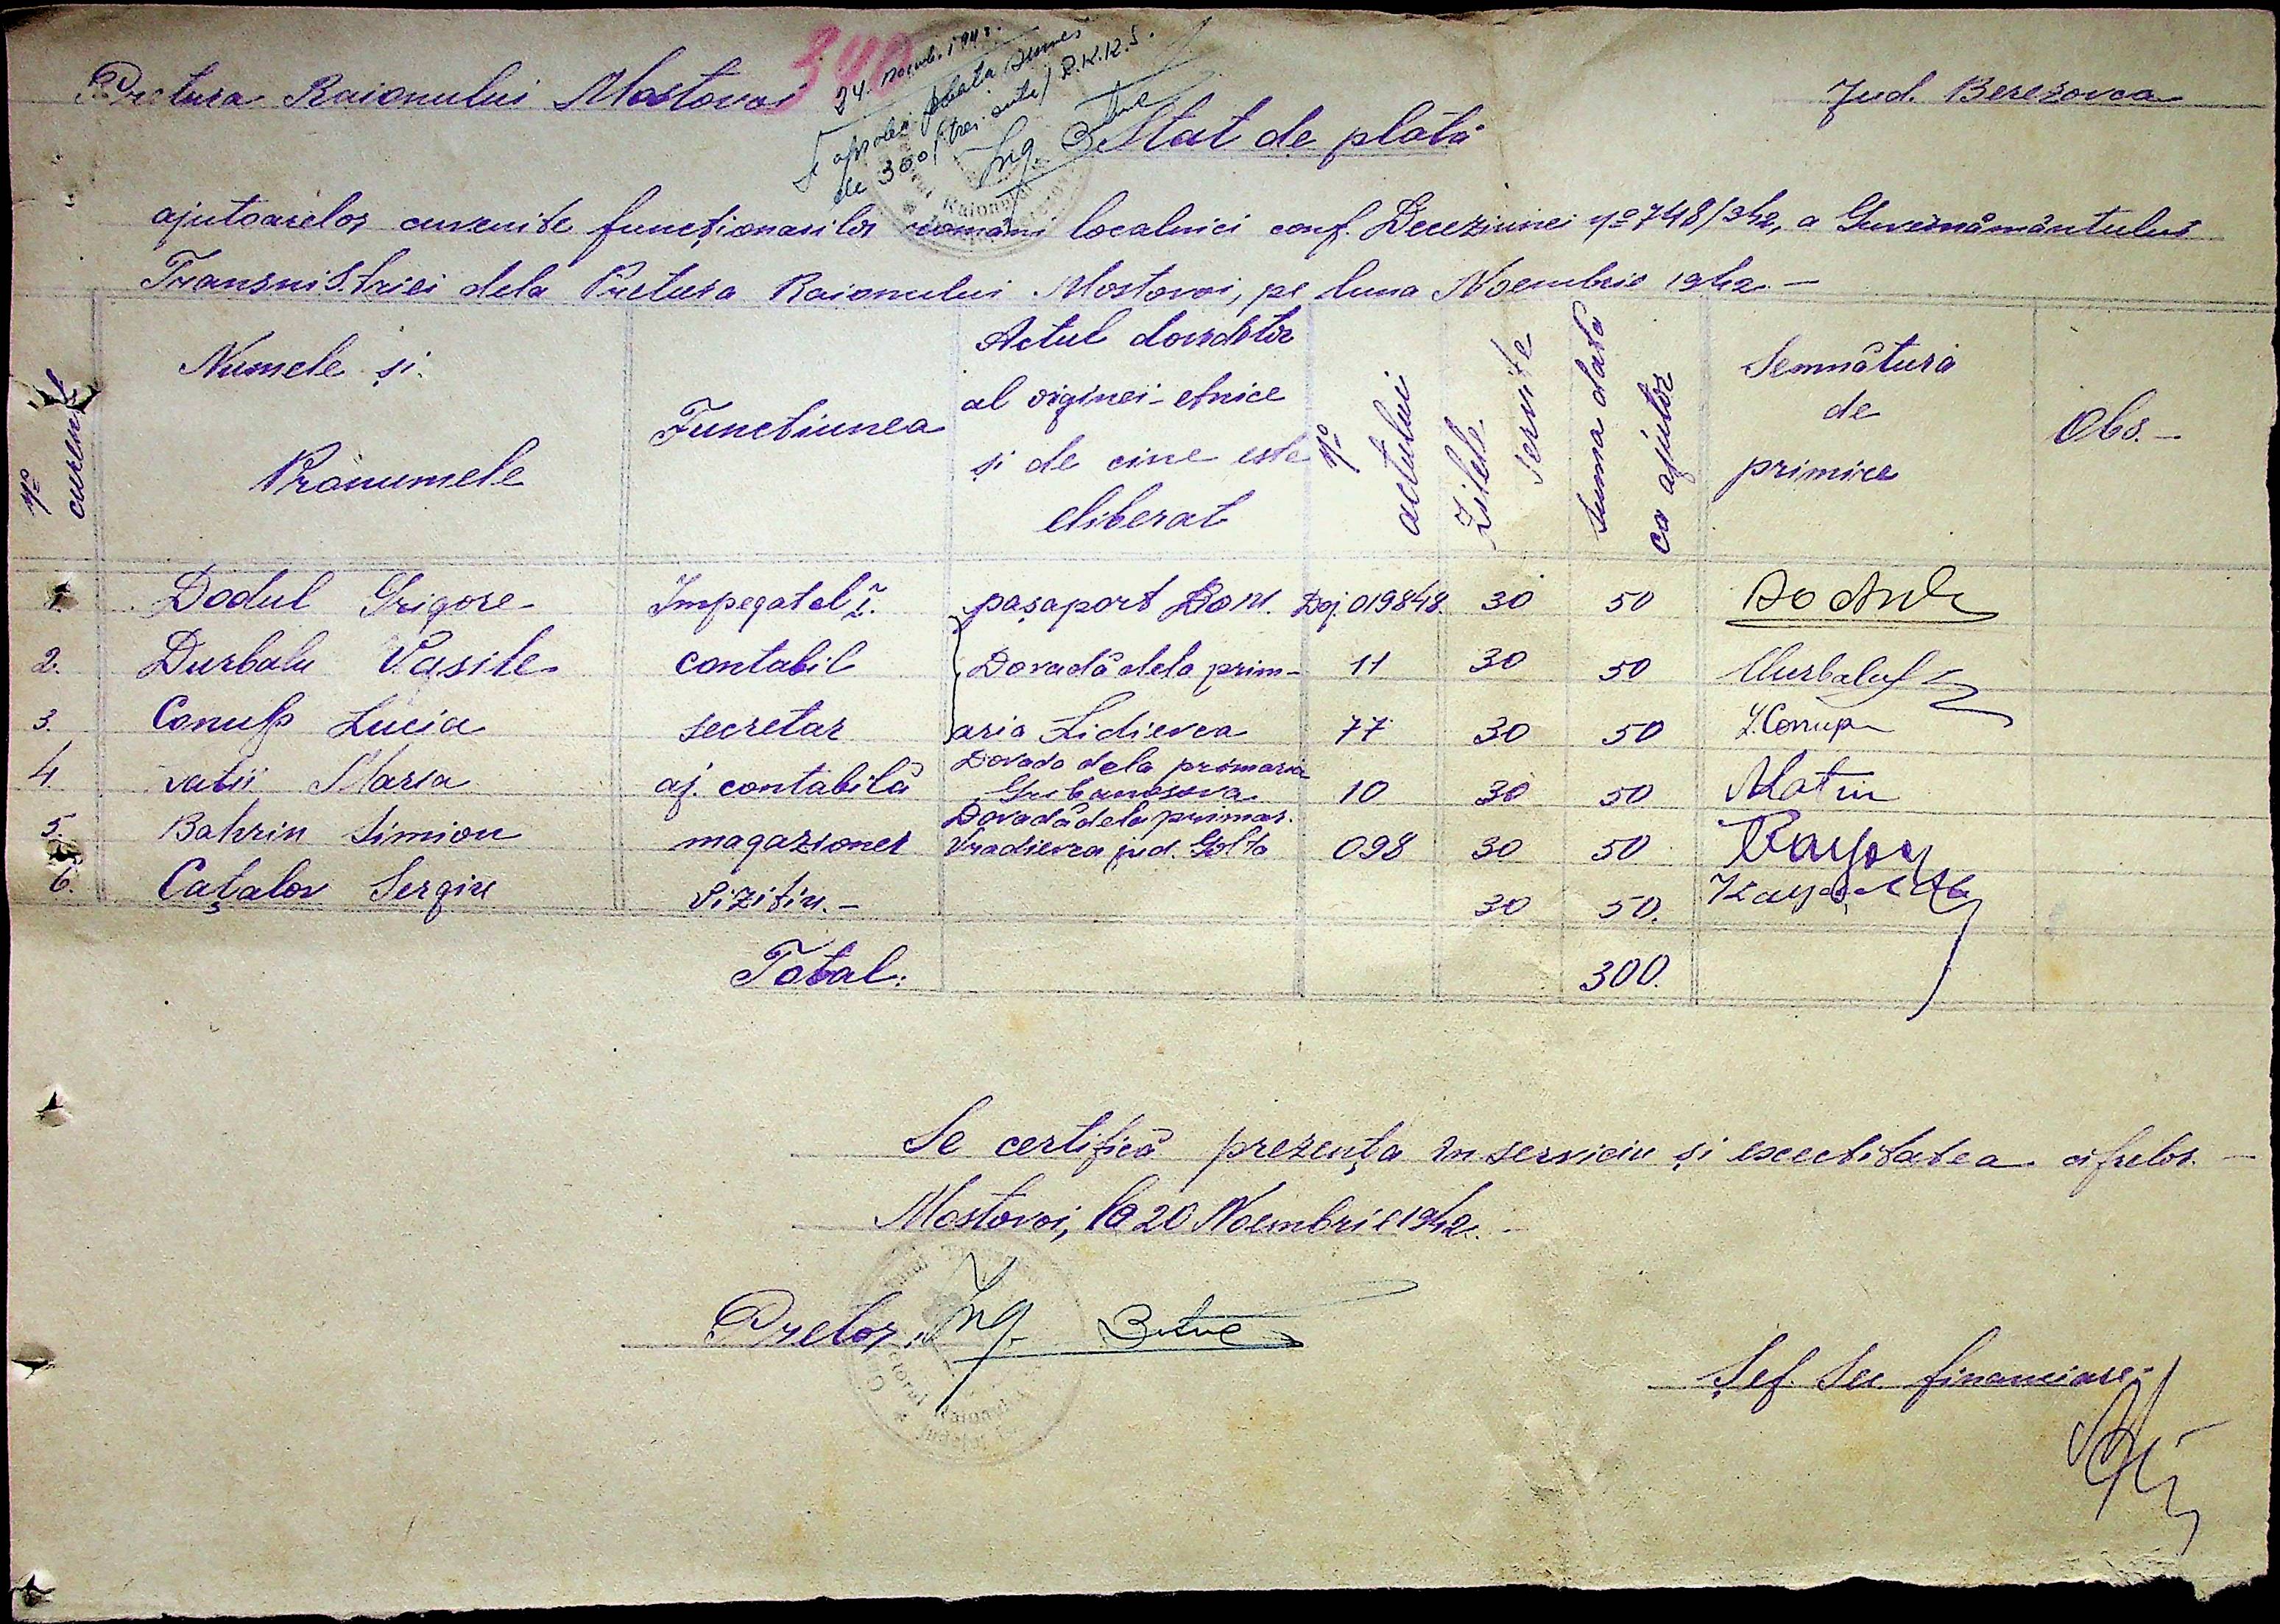 340
24. Noemb. 1942.
Se aprobă plata sumei
de 300 (trei sute) R.K.K.S.
Ing.
Pretura Raionului Mostovoi
Jud. Berezovca
Stat de plată
ajutoarelor cuvenite funcționarilor români localnici conf. Deceziunei No 748/942, a Guvernământului
Transnistriei dela Pretura Raionului Mostovoi, pe luna Noembrie 1942.-
No curent | Numele și Pronumele | Functiunea | Actul doveditor al originei-etnice și de cine este eliberat | No actului | Zilele servite | Suma data ca ajutor | Semnătura de primire | Obs.-
1 Dodul Grigore- Impegatel I. pașaport Dom. Doj. 019848. 30 50
2. Durbalu Vasile contabil Dovadă dela prim- 11 30 50
3. Conup Lucia secretar aria Lidievca 77 30 50 L. Conup
4. vatii Maria aj. contabilă Dovada dela primaria 10 30 50
5. Bahrin Simion magazioner Dovadă dela primar. Vradievca jud. Golta 098 30 50
6. Cațalov Sergiu vizitiu.- 30 50.
Total: 300.
Se certifică prezența în serviciu și exectitatea cifrelor.-
Mostovoi, la 20 Noembrie 1942.-
Pretor, Ing.
Șef. Sec financiare-